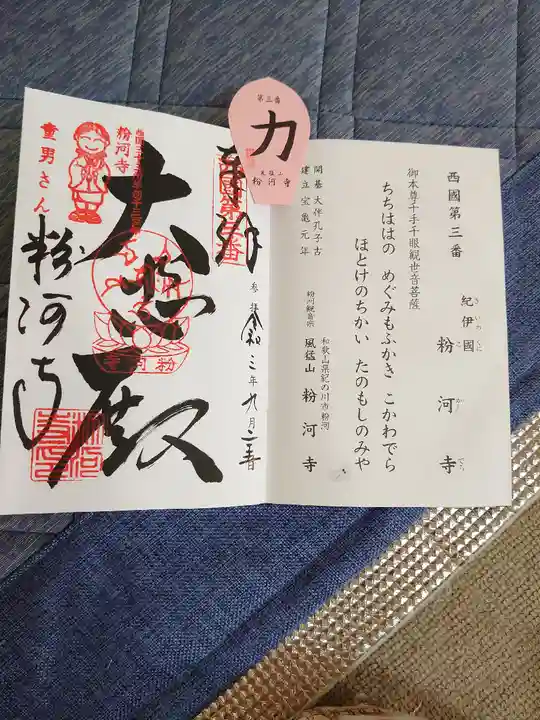 西國第三番
紀伊國
きいのくに
粉河寺
こかわでら
御本尊千手千眼観世音菩薩
ちちははの めぐみもふかき こかわでら
ほとけのちかい たのもしのみや
開基 大伴孔子古
建立 宝亀元年
和歌山県紀の川市粉河
粉河観音宗
風猛山 粉河寺
第三番
力
風猛山
粉河寺
奉拝
西国第三番
参拝 令和三年九月
大悲殿
粉河寺
粉河寺
童男さん
粉河寺